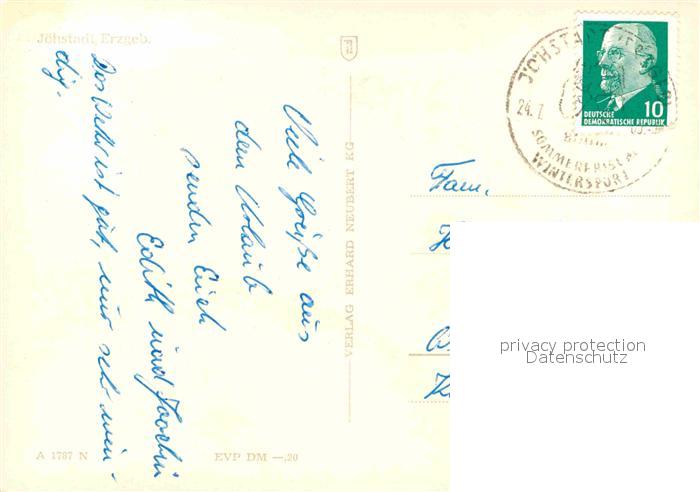 Jöhstadt Erzgeb.
Viele Grüße aus
dem Urlaub
senden Euch
Edith und Joachim
Das Wetter ist gut, nur sehr win-
dig.
VERLAG ERHARD NEUBERT KG
A 1787 N
EVP DM —,20
JÖHSTADT
24.7.
SOMMERFRISCHE
WINTERSPORT
DEUTSCHE
DEMOKRATISCHE REPUBLIK
10
Fam.
privacy protection
Datenschutz